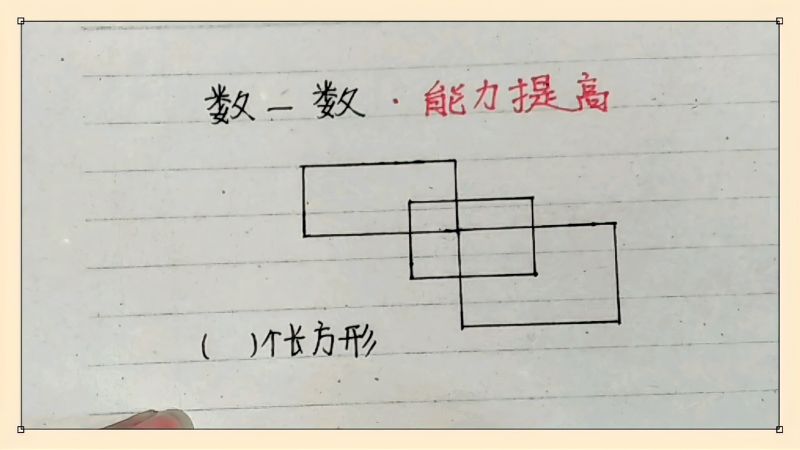 数一数·能力提高
( )个长方形